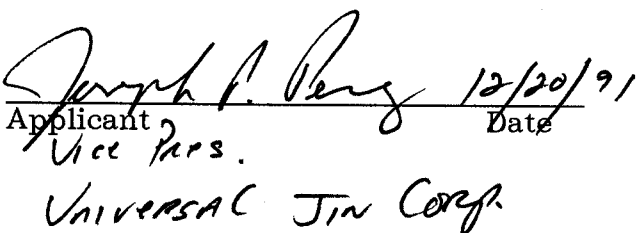 Joseph P. Perry 12/20/91
Applicant Date
Vice Pres.
Universal Jin Corp.